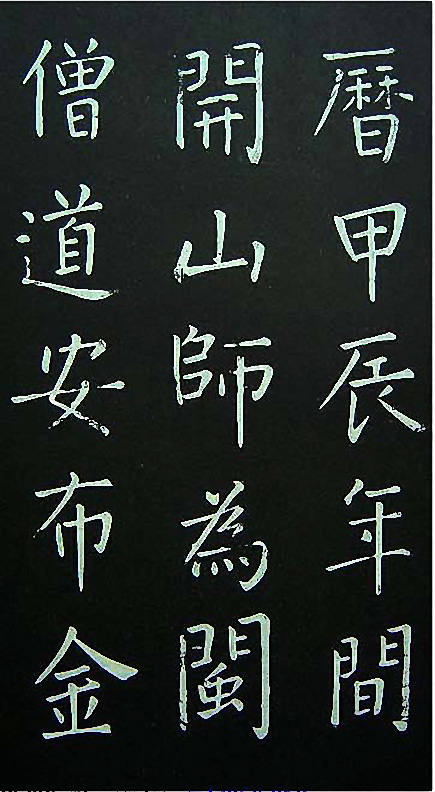 曆甲辰年間
開山師為閩
僧道安布金